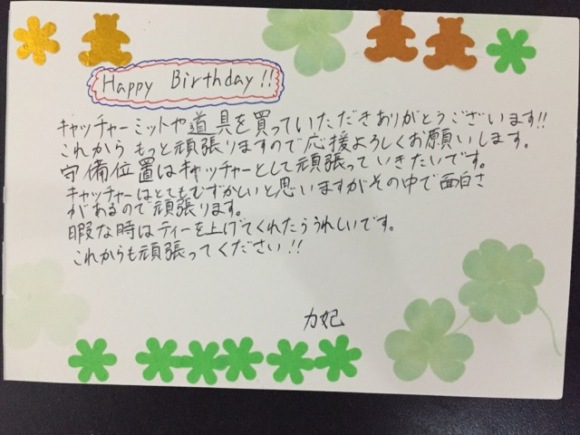 Happy Birthday!!
キャッチャーミットや道具を買っていただきありがとうございます!!
これからもっと頑張りますので応援よろしくお願いします。
守備位置はキャッチャーとして頑張っていきたいです。
キャッチャーはとてもむずかしいと思いますがその中で面白さ
があるので頑張ります。
暇な時はティーを上げてくれたらうれしいです。
これからも頑張ってください!!
力妃